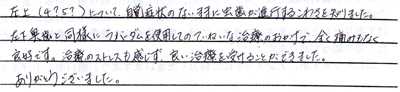 左上(4?5?)について、自覚症状のないままに虫歯が進行するこわさを知りました。
左下奥歯と同様にラバーダムを使用してのていねいな治療のおかげで、全く痛みもなく、
良好です。治療のストレスも感じず、良い治療を受けることができました。
ありがとうございました。